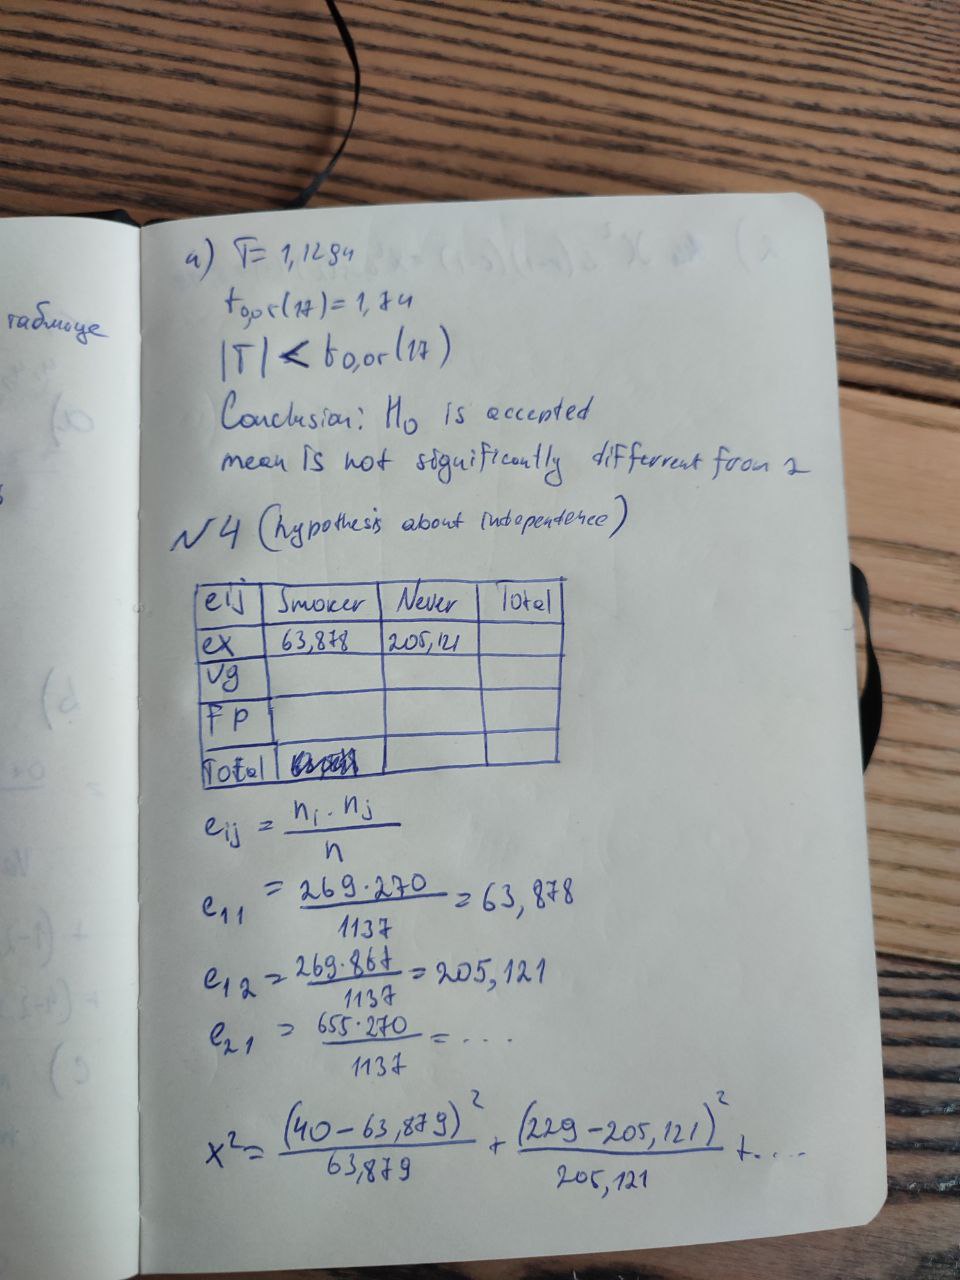 таблице
a) T= 1,1294
t0,05(17)=1,74
|T| < t0,05(17)
Conclusion: H0 is accepted
mean is not significantly different from 2
№4 (hypothesis about independence)
eij Smoker Never Total
ex 63,878 205,121
vg
Fp
Total
eij = ni · nj / n
e11 = 269·270 / 1137 = 63,878
e12 = 269·867 / 1137 = 205,121
e21 = 655·270 / 1137 = ....
x² = (40 – 63,879)² / 63,879 + (229 – 205,121)² / 205,121 + ....